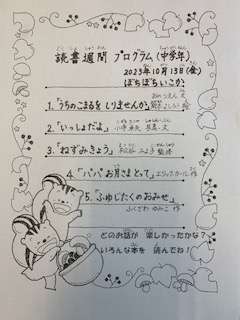 読書週間 プログラム(中学年)
2023年10月13日(金)
ぽちぽちいこか
1.「うちのこまるを しりませんか」
2.「いっしょだよ」
小寺卓矢 写真・文
3.「ねずみきょう」
4.「パパ お月さまとって」エリック・カール 作
5.「ふゆじたくのおみせ」
ふくざわ ゆみこ 作
どのお話が 楽しかったかな?
いろんな本を 読んでね!